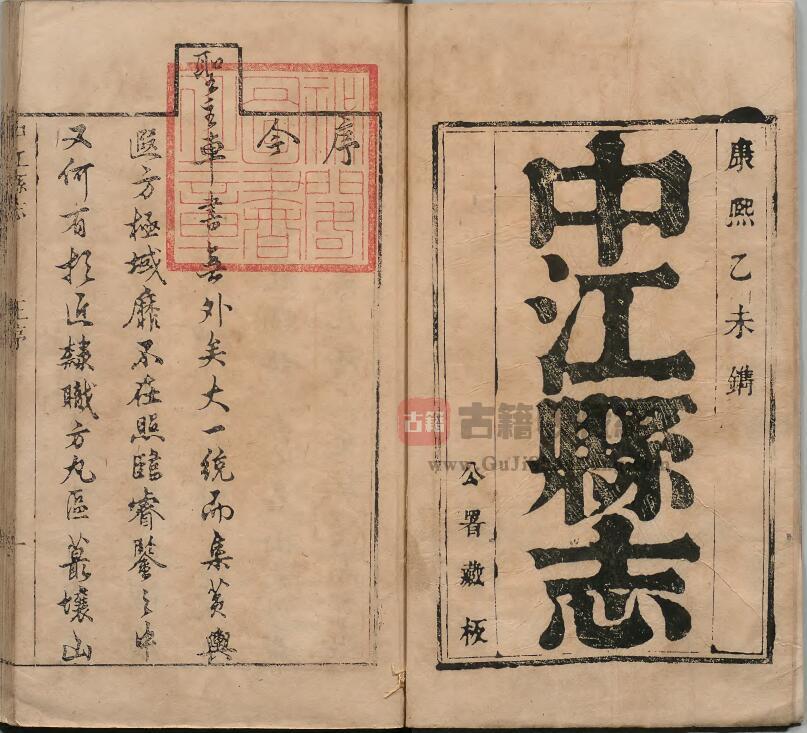 康熙乙未鐫
中江縣志
公署藏板
序
今
聖主車書無外矣大一統而集黃輿
遐方極域靡不在照臨睿鑒之中
又何有於近隸職方九區蕞壤山
中江縣志
序
一
祕閣圖書之章
古籍
古籍